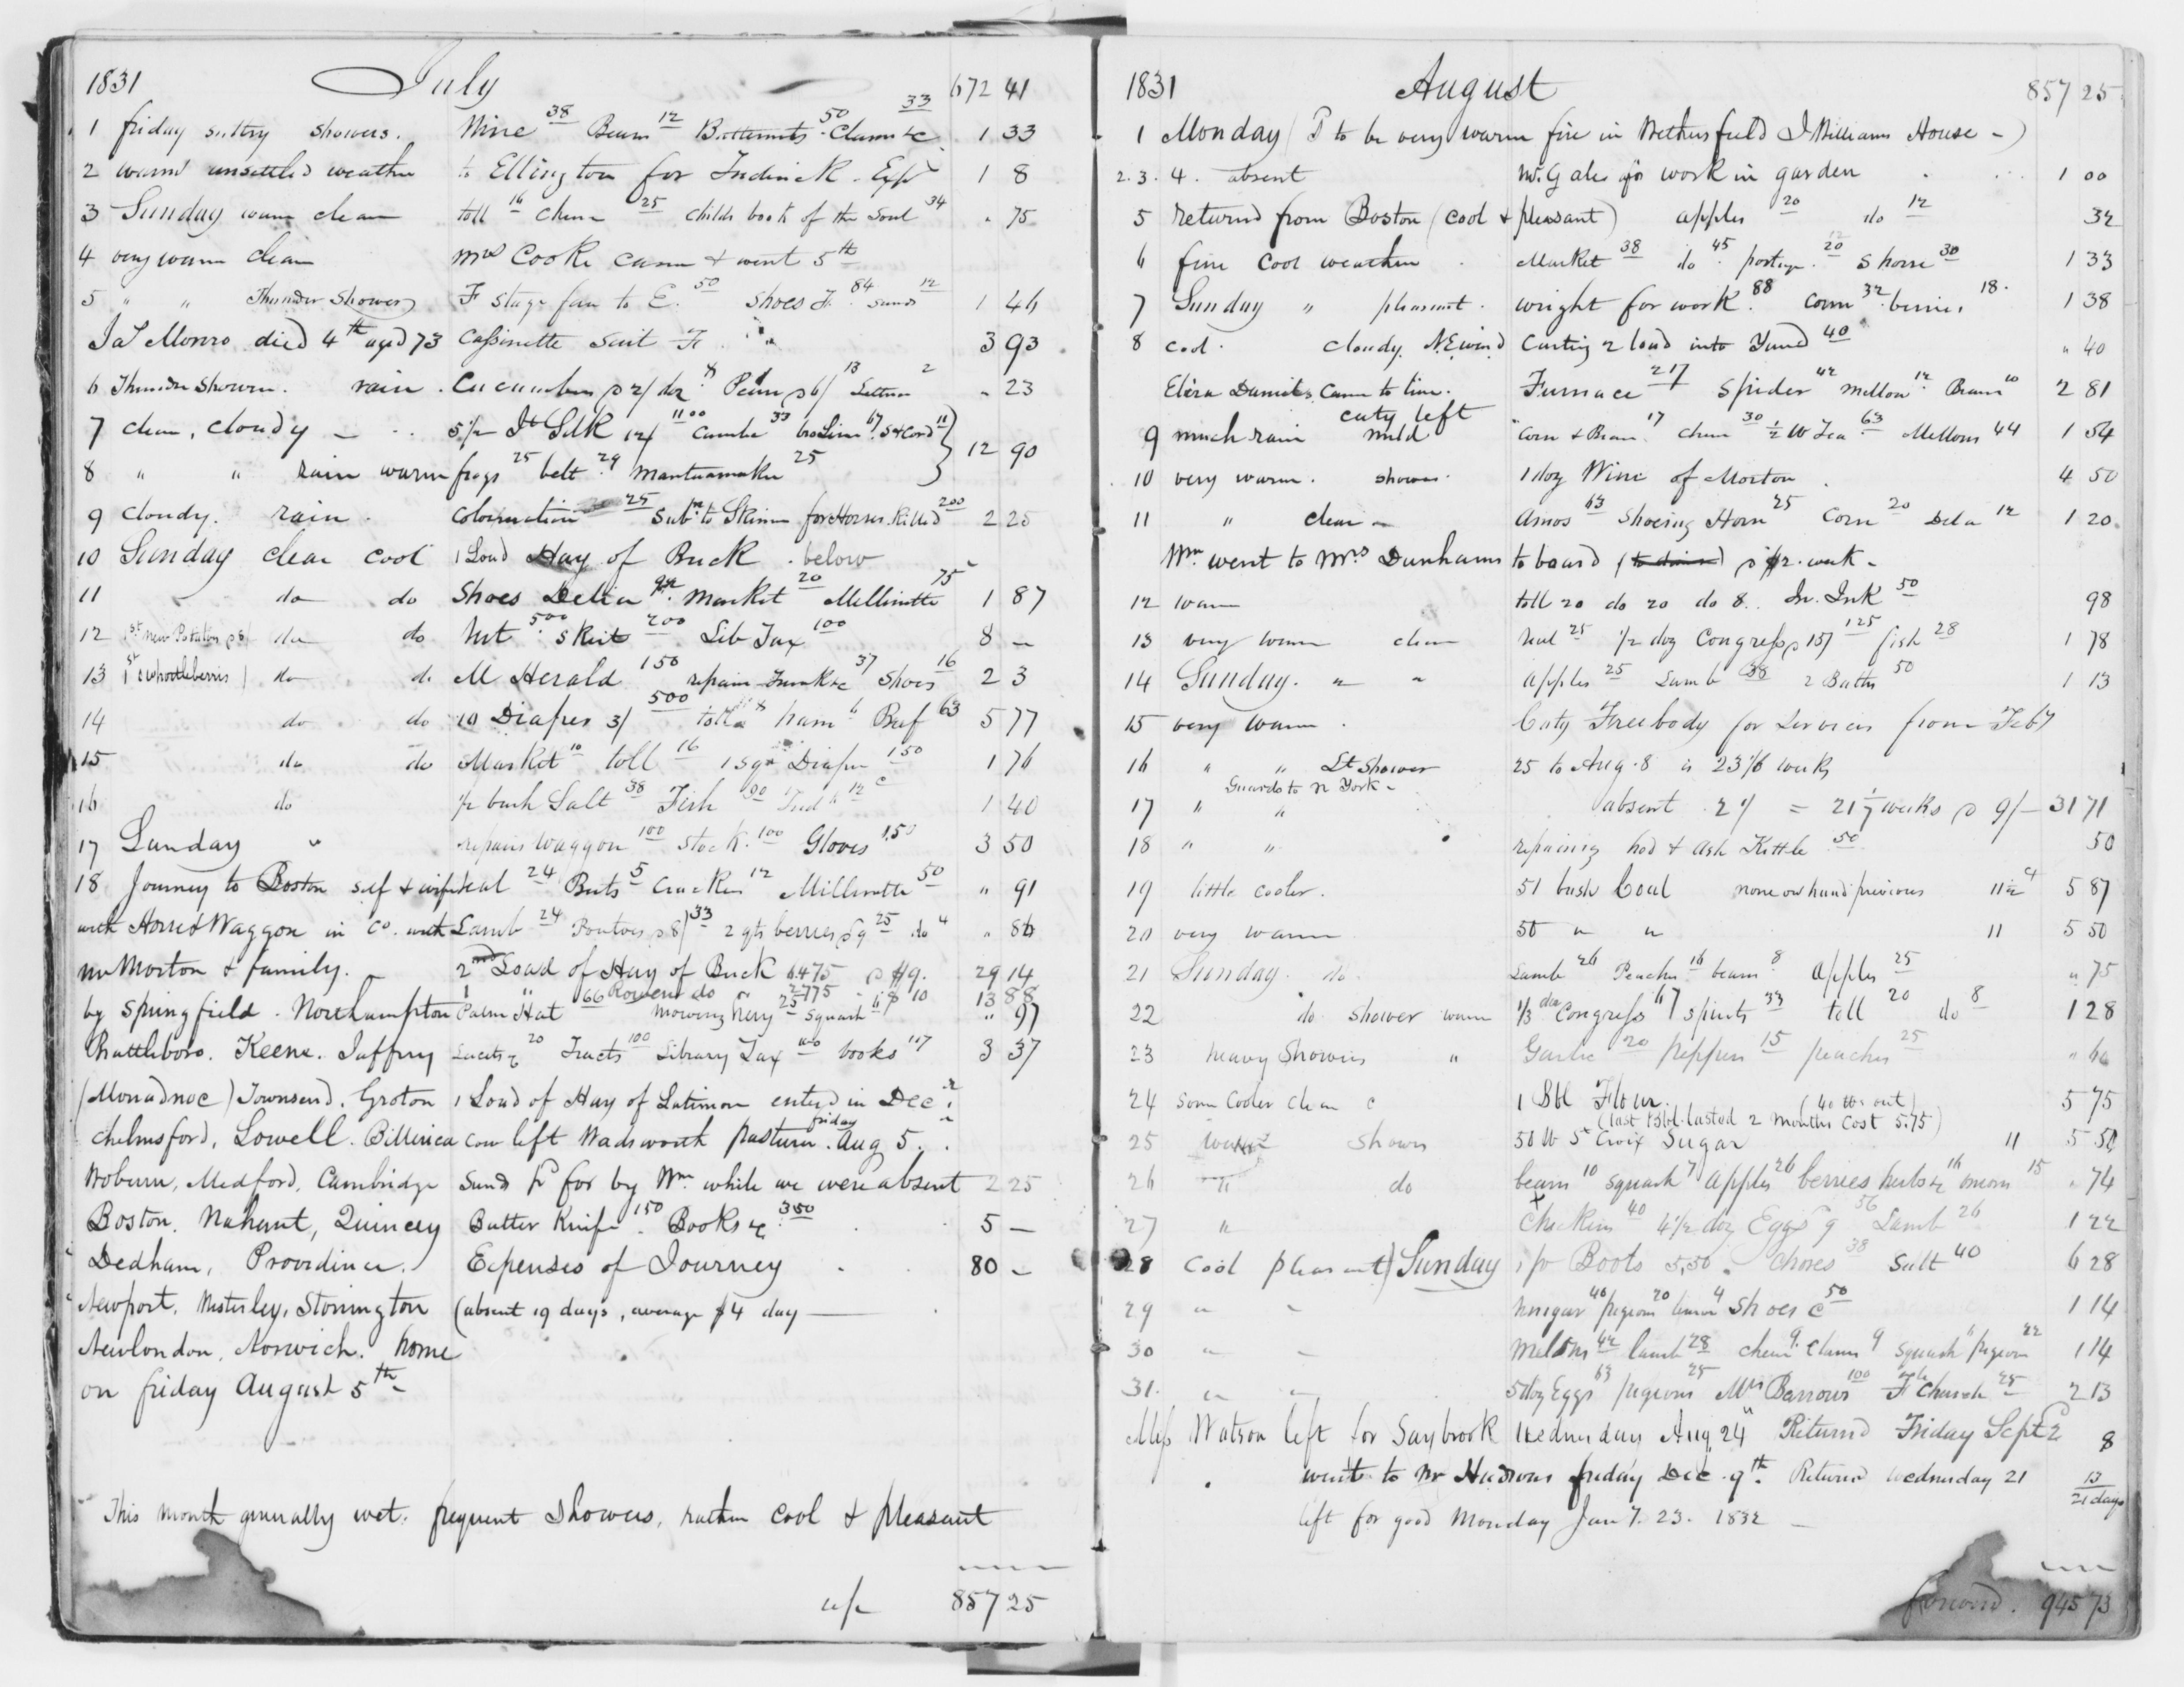 1831 July 672 41
1 friday sultry showers. Wine 38 Beans 12 Butternuts 50 Clams &c 33 1 33
2 warm unsettled weather to Ellington for Frederick. Exps 1 8
3 Sunday warm clear toll 16 cheese 25 childs book of the Soul 34 " 75
4 very warm clear Mrs Cooke came & went 5th
5 " " Thunder Shower F stage fare to E. 50 shoes F. 84 sunds 12 1 46
Jas Monro died 4th aged 73 Cassinette suit F 3 93
6 Thunder Shower. rain. Cucumbers @ 2/ doz 8 Peas @ 6/ 13 Lettuce 2 " 23
7 clear, cloudy 5 1/2 It Silk 12/ 1100 Cambc 33 67 11
8 " " rain warm frogs 25 belt 29 Mantuamaker 25 12 90
9 cloudy. rain. 25 Subn to Skinner for Horses Killed 200 2 25
10 Sunday clear cool 1 Load Hay of Buck. below
11 do do Shoes Delia 92 Market 20 Millinette 75 1 87
12 1st new Potatoes @ 8/ do do Mt 500 skirt 200 Lib Tax 100 8 —
13 1st whortleberries do do M Herald 150 repairs Trunk &c 37 Shoes 16 2 3
14 do do 10 Diaper 3/ 500 toll 8 ham 6 Beef 63 5 77
15 do do Market 10 toll 16 1 Diaper 150 1 76
16 do 1/2 bush Salt 38 Fish 90 12 1 40
17 Sunday " repairs waggon 100 stock. 100 Gloves 150 3 50
18 Journey to Boston self & wife Veal 24 Beets 5 Crackers 12 Millinette 50 " 91
with Horse & Waggon in Co. with Lamb 24 Potatoes @ 8/ 33 2 qts berries @ 9 25 do 4 " 86
Mr Morton & family. 2nd Load of Hay of Buck 6475 @ $9. 29 14
1 " 66 Rowens do 2775 " $ 10 13 88
by Springfield. Northampton Palm Hat mowing hay 25 Squash 6 " 97
Brattleboro. Keene. Jaffrey 20 Tracts 100 Library Tax 100 books 117 3 37
(Monadnoc) Townsend. Groton 1 Load of Hay of Latimer enterd in Decr
Chelmsford, Lowell. Billerica Cow left Wadsworth pasture. friday Aug 5.
Woburn, Medford, Cambridge Sunds pd for by Wm while we were absent 2 25
Boston. Nahant, Quincey Butter Knife 150 Books &c 350 5 —
Dedham, Providence. Expenses of Journey 80 —
Newport. Westerley, Stonington (absent 19 days, average $4 day —
Newlondon, Norwich. home
on friday August 5th
This month generally wet: frequent showers, rather cool & pleasant
857 25
1831 August 857 25
1 Monday (P to be very warm fire in Wethersfield J Williams House —)
2. 3. 4. absent Mr. Gales for work in garden 1 00
5 returnd from Boston (cool & pleasant) apples 20 do 12 32
6 fine cool weather. Market 38 do 45 postage 20 shoes 30 1 33
7 Sunday " pleasant. Wright for work. 88 Corn 32 berries 18. 1 38
8 cool. cloudy. N.E wind Carting 2 load into Yard 40 " 40
Eliza Daniels came to live. Furnace 217 Spider 42 mellon 12 Beans 10 2 81
caty left
9 much rain mild Corn & Beans 17 cheese 30 1/2 lb Tea 63 Mellons 44 1 54
10 very warm. shower. 1 doz Wine of Morton 4 50
11 " clear " Amos 63 Shoeing Horse 25 Corn 20 Delia 12 1 20
Wm. went to Mrs Dunhams to board @ $2. week —
12 warm toll 20 do 20 do 8. In. Ink 50 98
13 very warm clear Veal 25 1/2 doz Congress @ 15/ 125 fish 28 1 78
14 Sunday. " " apples 25 Lamb 38 2 Baths 50 1 13
15 very warm. Caty Freebody for Services from Feby
16 " " Lt Shower 25 to Aug. 8 is 23 1/6 weeks
Guards to N York —
17 " " absent 2 1/ = 21 1/7 weeks @ 9/— 31 71
18 " " repairing hod & Ash Kettle 50 50
19 little cooler. 51 bush Coal none on hand previous 11 1/2 c 5 87
20 very warm 50 " " 11 5 50
21 Sunday. do. Lamb 26 Peaches 16 beans 8 Apples 25 " 75
22 do. shower warm 1/3 doz Congress 67 spirits 33 toll 20 do 8 1 28
23 heavy Showers " Garlic 20 peppers 15 peaches 25 " 60
24 some cooler clear 1 Bbl Flour. (40 lbs out) 5 75
(last Bbl. lasted 2 months cost 5.75)
25 warm showers 50 lb St Croix Sugar 11 5 50
26 " do beans 10 squash 7 apples 26 berries herbs &c 16 onions 15 " 74
27 " Chickens 40 4 1/2 doz Eggs 9 56 Lamb 26 1 22
28 Cool pleasant) Sunday 1 pr Boots 5,50. Chores 38 Salt 40 6 28
29 " " vinegar 40 pigeons 20 4 Shoes C 50 1 14
30 " " Melons 42 lamb 28 cheese 9. Clams 9 squash pigeons 22 1 14
31. " " 5 doz Eggs 63 pigeons 25 Mrs Barrows 100 F Church 25 2 13
Miss Watson left for Saybrook Wednesday Aug. 24" Returnd Friday Sept 2 8
went to Mr Hudsons friday Dec. 9th. Returnd Wednesday 21 13
21 days
left for good Monday Jany. 23. 1832 —
forward. 945 73